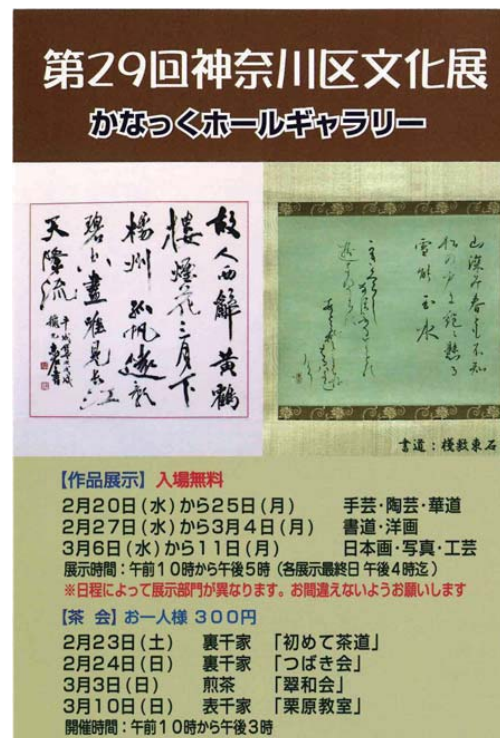 第29回神奈川区文化展
かなっくホールギャラリー
故人西辞黄鶴
楼煙花三月下
揚州孤帆遠影
碧空盡唯見長江
天際流
山深み春とも不知
松の戸に絶々懸る
雪能玉水
書道:棧敷東石
【作品展示】入場無料
2月20日(水)から25日(月) 手芸・陶芸・華道
2月27日(水)から3月4日(月) 書道・洋画
3月6日(水)から11日(月) 日本画・写真・工芸
展示時間:午前10時から午後5時(各展示最終日 午後4時迄)
※日程によって展示部門が異なります。お間違えないようお願いします
【茶 会】お一人様 300円
2月23日(土) 裏千家 「初めて茶道」
2月24日(日) 裏千家 「つばき会」
3月3日(日) 煎茶 「翠和会」
3月10日(日) 表千家 「栗原教室」
開催時間:午前10時から午後3時